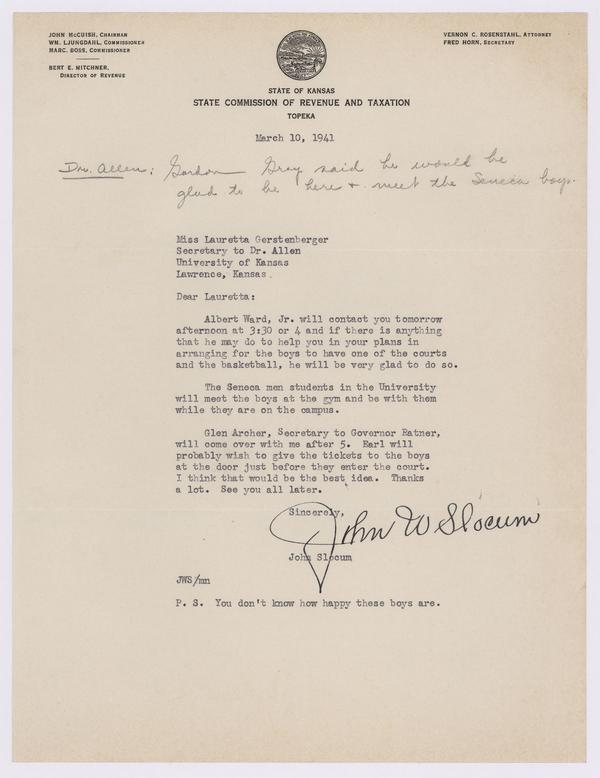 JOHN McCUISH, CHAIRMAN
WM. LJUNGDAHL, COMMISSIONER
MARC. BOSS, COMMISSIONER
BERT E. MITCHNER,
DIRECTOR OF REVENUE
VERNON C. ROSENSTAHL, ATTORNEY
FRED HORN, SECRETARY
STATE OF KANSAS
STATE COMMISSION OF REVENUE AND TAXATION
TOPEKA
March 10, 1941
Dr. Allen: Gordon Gray said he would be
glad to be here + meet the Seneca boys.
Miss Lauretta Gerstenberger
Secretary to Dr. Allen
University of Kansas
Lawrence, Kansas.
Dear Lauretta:
Albert Ward, Jr. will contact you tomorrow
afternoon at 3:30 or 4 and if there is anything
that he may do to help you in your plans in
arranging for the boys to have one of the courts
and the basketball, he will be very glad to do so.
The Seneca men students in the University
will meet the boys at the gym and be with them
while they are on the campus.
Glen Archer, Secretary to Governor Ratner,
will come over with me after 5. Earl will
probably wish to give the tickets to the boys
at the door just before they enter the court.
I think that would be the best idea. Thanks
a lot. See you all later.
Sincerely,
John W Slocum
John Slocum
JWS/mn
P. S. You don't know how happy these boys are.